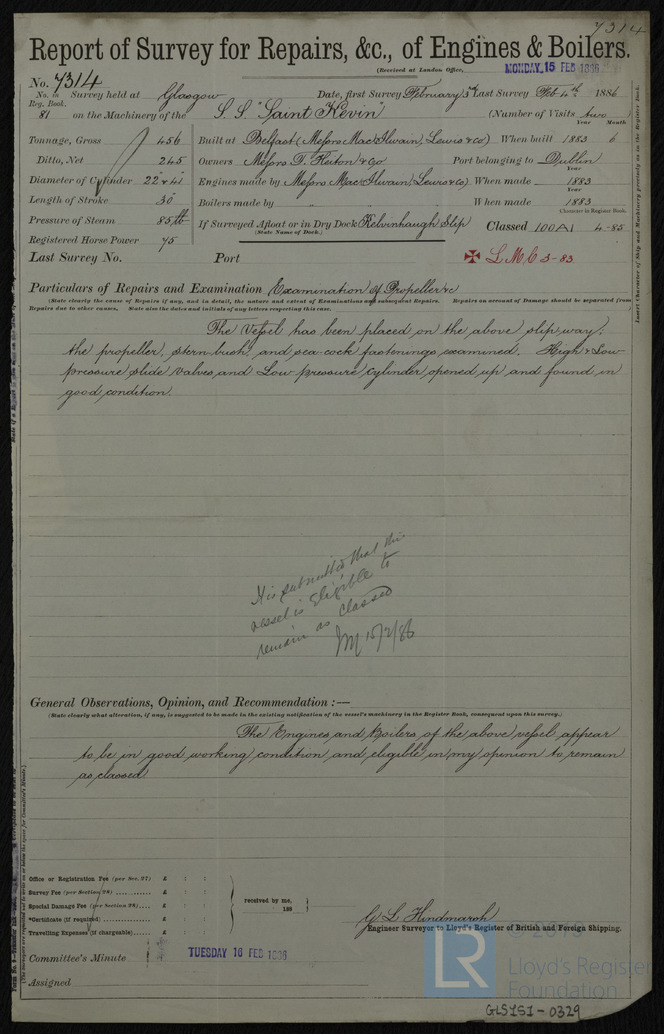 7314
Report of Survey for Repairs, &c., of Engines & Boilers.
(Received at London Office, MONDAY, 15 FEB 1886
No. 7314
No. in Reg. Book. Survey held at Glasgow Date, first Survey February 3rd Last Survey Feb 4th 1886
81 on the Machinery of the S. S. "Saint Kevin" (Number of Visits two
Tonnage, Gross 456
Ditto, Net 245
Diameter of Cylinder 22" & 41"
Length of Stroke 30"
Pressure of Steam 85 lb
Registered Horse Power 75
Year Month
Built at Belfast (Messrs MacIlwain, Lewis & Co) When built 1883 6
Owners Messrs T. Heiton & Co Port belonging to Dublin
Year
Engines made by Messrs MacIlwain, Lewis & Co) When made 1883
Year
Boilers made by " " When made 1883
If Surveyed Afloat or in Dry Dock Kelvinhaugh Slip
(State Name of Dock.)
Character in Register Book.
Classed 100A1 4-85
Last Survey No. Port ✠ L.M.C 5-83
Particulars of Repairs and Examination Examination of Propeller &c
(State clearly the cause of Repairs if any, and in detail, the nature and extent of Examinations and subsequent Repairs. Repairs on account of Damage should be separated from
Repairs due to other causes, State also the dates and initials of any letters respecting this case.
The Vessel has been placed on the above slip way.
the propeller, stern bush, and sea-cock fastenings examined. High & Low
pressure slide valves, and Low pressure cylinder, opened up and found in
good condition.
It is submitted that this
vessel is eligible to
remain as classed
15/2/86
General Observations, Opinion, and Recommendation :—
(State clearly what alteration, if any, is suggested to be made in the existing notification of the vessel's machinery in the Register Book, consequent upon this survey.)
The Engines and Boilers of the above vessel appear
to be in good working condition and eligible in my opinion to remain
as classed
Office or Registration Fee (per Sec. 27) £ : :
Survey Fee (per Section 28) £ : :
Special Damage Fee (per Section 28) £ : :
*Certificate (if required) £ : :
Travelling Expenses (if chargeable) £ : :
received by me,
188
G L Hindmarsh
Engineer Surveyor to Lloyd's Register of British and Foreign Shipping.
Committee's Minute TUESDAY 16 FEB 1886
Assigned
Insert Character of Ship and Machinery precisely as in the Register Book.
LR
Lloyd's Register
Foundation
GLS151-0329